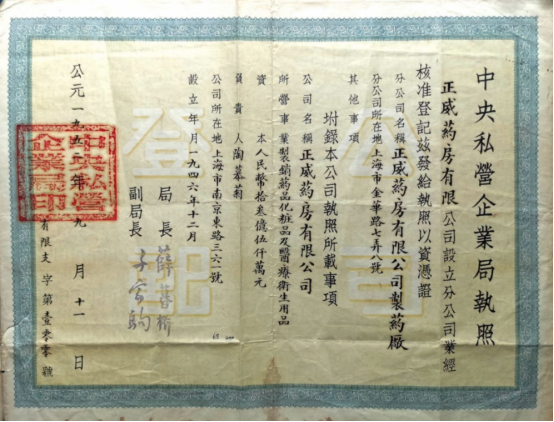 中央私營企業局執照
正威葯房有限公司設立分公司業經
核准登記兹發給執照以資憑證
分公司名稱 正威葯房有限公司製葯廠
分公司所在地 上海市金華路七弄八號
其他事項
坿錄本公司執照所載事項
公司名稱 正威葯房有限公司
所營事業 製銷葯品化粧品及醫療衛生用品
資本 人民幣拾叁億伍仟萬元
負責人 陶慕菊
公司所在地 上海市南京東路三六號
設立年月 一九四六年十二月
局長 薛暮橋
副局長
公元一九五 年 九月十一日
有限支字第壹零零號
中央私營企業局印
公司
登記